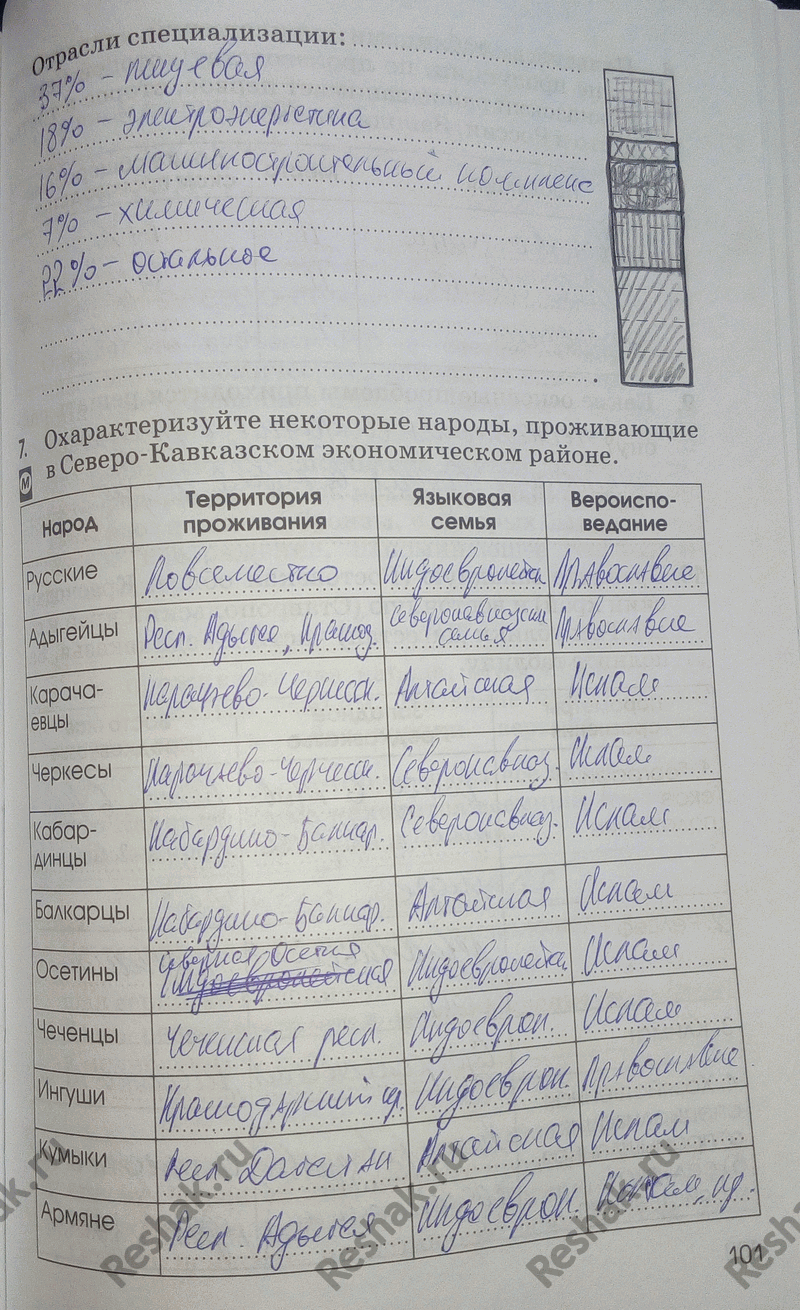 Отрасли специализации:
37% – пищевая
18% – электроэнергетика
16% – машиностроительный комплекс
7% – химическая
22% – остальное
7. Охарактеризуйте некоторые народы, проживающие
в Северо-Кавказском экономическом районе.
М
Народ Территория проживания Языковая семья Вероиспо-ведание
Русские Повсеместно Индоевропейск. Православие
Адыгейцы Респ. Адыгея, Краснод. Северокавказская семья Православие
Карача-евцы Карачаево-Черкесск. Алтайская Ислам
Черкесы Карачаево-Черкесск. Северокавказ. Ислам
Кабар-динцы Кабардино-Балкар. Северокавказ. Ислам
Балкарцы Кабардино-Балкар. Алтайская Ислам
Осетины Северная Осетия Индоевропейск. Ислам
Чеченцы Чеченская респ. Индоевроп. Ислам
Ингуши Краснодарский кр. Индоевроп. Православие
Кумыки Респ. Дагестан Алтайская Ислам
Армяне Респ. Адыгея Индоевроп.
101
Reshak.ru
Reshak.ru
Reshak.ru
Reshak.ru